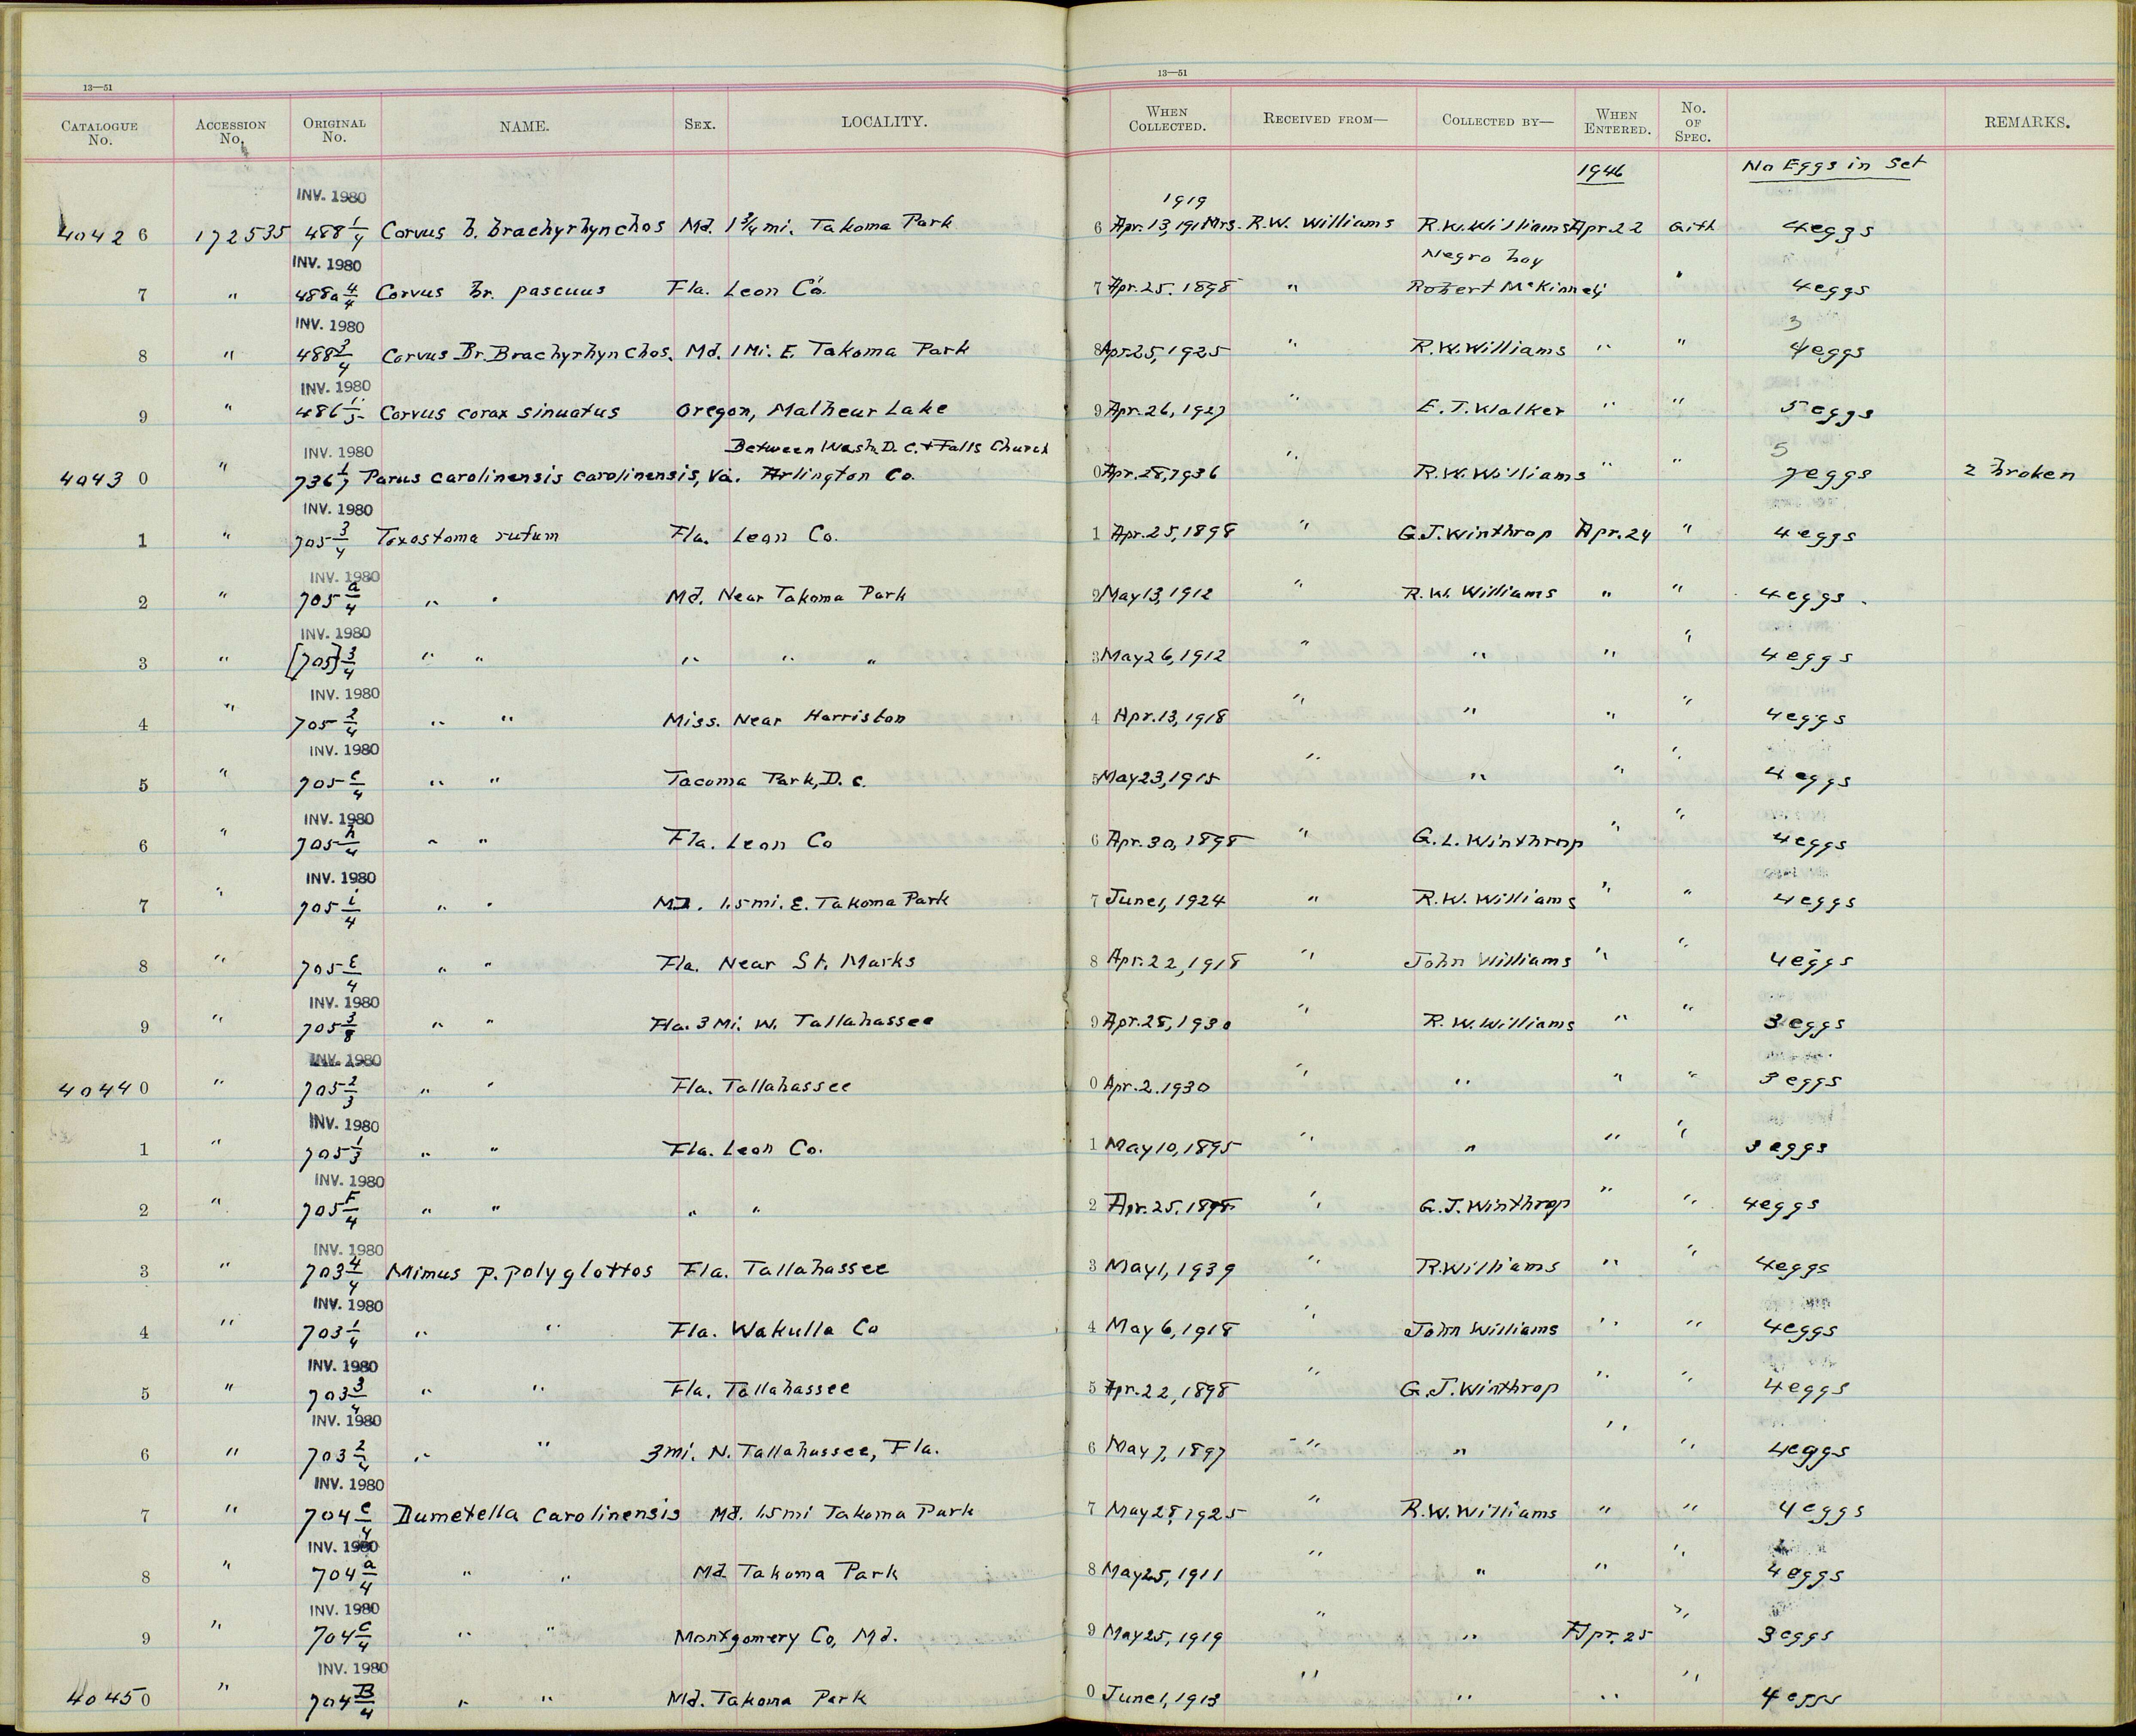 13—51 13—51
CATALOGUE No. ACCESSION No. ORIGINAL No. NAME. SEX. LOCALITY. WHEN COLLECTED. RECEIVED FROM— COLLECTED BY— WHEN ENTERED. No. OF SPEC. REMARKS.
1946 No Eggs in Set
INV. 1980 1919
40426 172535 488 1/4 Corvus b. brachyrhynchos Md. 1 3/4 mi. Takoma Park 6 Apr. 13, 191 Mrs. R.W. Williams R.W. Williams Apr. 22 Gift 4 eggs
INV. 1980 Negro boy
7 " 488a 4/4 Corvus br. pascuus Fla. Leon Co. 7 Apr. 25. 1898 " Robert McKinney " 4 eggs
INV. 1980 3
8 " 488 3/4 Corvus Br. Brachyrhynchos. Md. 1 Mi. E. Takoma Park 8 Apr. 25, 1925 " R.W. Williams " " 4 eggs
INV. 1980
9 " 486 1/5 Corvus corax sinuatus Oregon, Malheur Lake 9 Apr. 26, 1927 " E. J. Walker " " 5 eggs
INV. 1980 Between Wash. D. C. & Falls Church 5
40430 " 736 1/7 Parus carolinensis carolinensis, Va. Arlington Co. 0 Apr. 28, 1936 " R.W. Williams " " 7 eggs 2 broken
INV. 1980
1 " 705 3/4 Toxostoma rufum Fla. Leon Co. 1 Apr. 25, 1898 " G.J. Winthrop Apr. 24 " 4 eggs
INV. 1980
2 " 705 a/4 " " Md. Near Takoma Park 2 May 13, 1912 " R.W. Williams " " 4 eggs.
INV. 1980
3 " [705] 3/4 " " " " " 3 May 26, 1912 " " " " 4 eggs
INV. 1980
4 " 705 2/4 " " Miss. Near Harriston 4 Apr. 13, 1918 " " " " 4 eggs
INV. 1980
5 " 705 c/4 " " Tacoma Park, D. C. 5 May 23, 1915 " " " " 4 eggs
INV. 1980
6 " 705 h/4 " " Fla. Leon Co 6 Apr. 30, 1898 " G. L. Winthrop " " 4 eggs
INV. 1980
7 " 705 i/4 " " Md. 1.5 mi. E. Takoma Park 7 June 1, 1924 " R.W. Williams " " 4 eggs
8 " 705 E/4 " " Fla. Near St. Marks 8 Apr. 22, 1918 " John Williams " " 4 eggs
INV. 1980
9 " 705 3/8 " " Fla. 3 Mi. W. Tallahassee 9 Apr. 28, 1930 " R. W. Williams " " 3 eggs
INV. 1980
40440 " 705 2/3 " " Fla. Tallahassee 0 Apr. 2. 1930 " " " " 3 eggs
INV. 1980
1 " 705 1/3 " " Fla. Leon Co. 1 May 10, 1895 " " " " 3 eggs
INV. 1980
2 " 705 F/4 " " " " 2 Apr. 25. 1898 " G.J. Winthrop " " 4 eggs
INV. 1980
3 " 703 4/4 Mimus p. polyglottos Fla. Tallahassee 3 May 1, 1939 " R. Williams " " 4 eggs
INV. 1980
4 " 703 1/4 " " Fla. Wakulla Co 4 May 6, 1918 " John Williams " " 4 eggs
INV. 1980
5 " 703 3/4 " " Fla. Tallahassee 5 Apr. 22, 1898 " G.J. Winthrop " " 4 eggs
INV. 1980
6 " 703 2/4 " " 3 mi. N. Tallahassee, Fla. 6 May 7, 1897 " " " " 4 eggs
INV. 1980
7 " 704 e/4 Dumetella carolinensis Md. 1.5 mi Takoma Park 7 May 28, 1925 " R.W. Williams " " 4 eggs
INV. 1980
8 " 704 a/4 " " Md Takoma Park 8 May 25, 1911 " " " " 4 eggs
INV. 1980
9 " 704 C/4 " " Montgomery Co, Md. 9 May 25, 1919 " " Apr. 25 " 3 eggs
INV. 1980
40450 " 704 B/4 " " Md. Takoma Park 0 June 1, 1913 " " " " 4 eggs